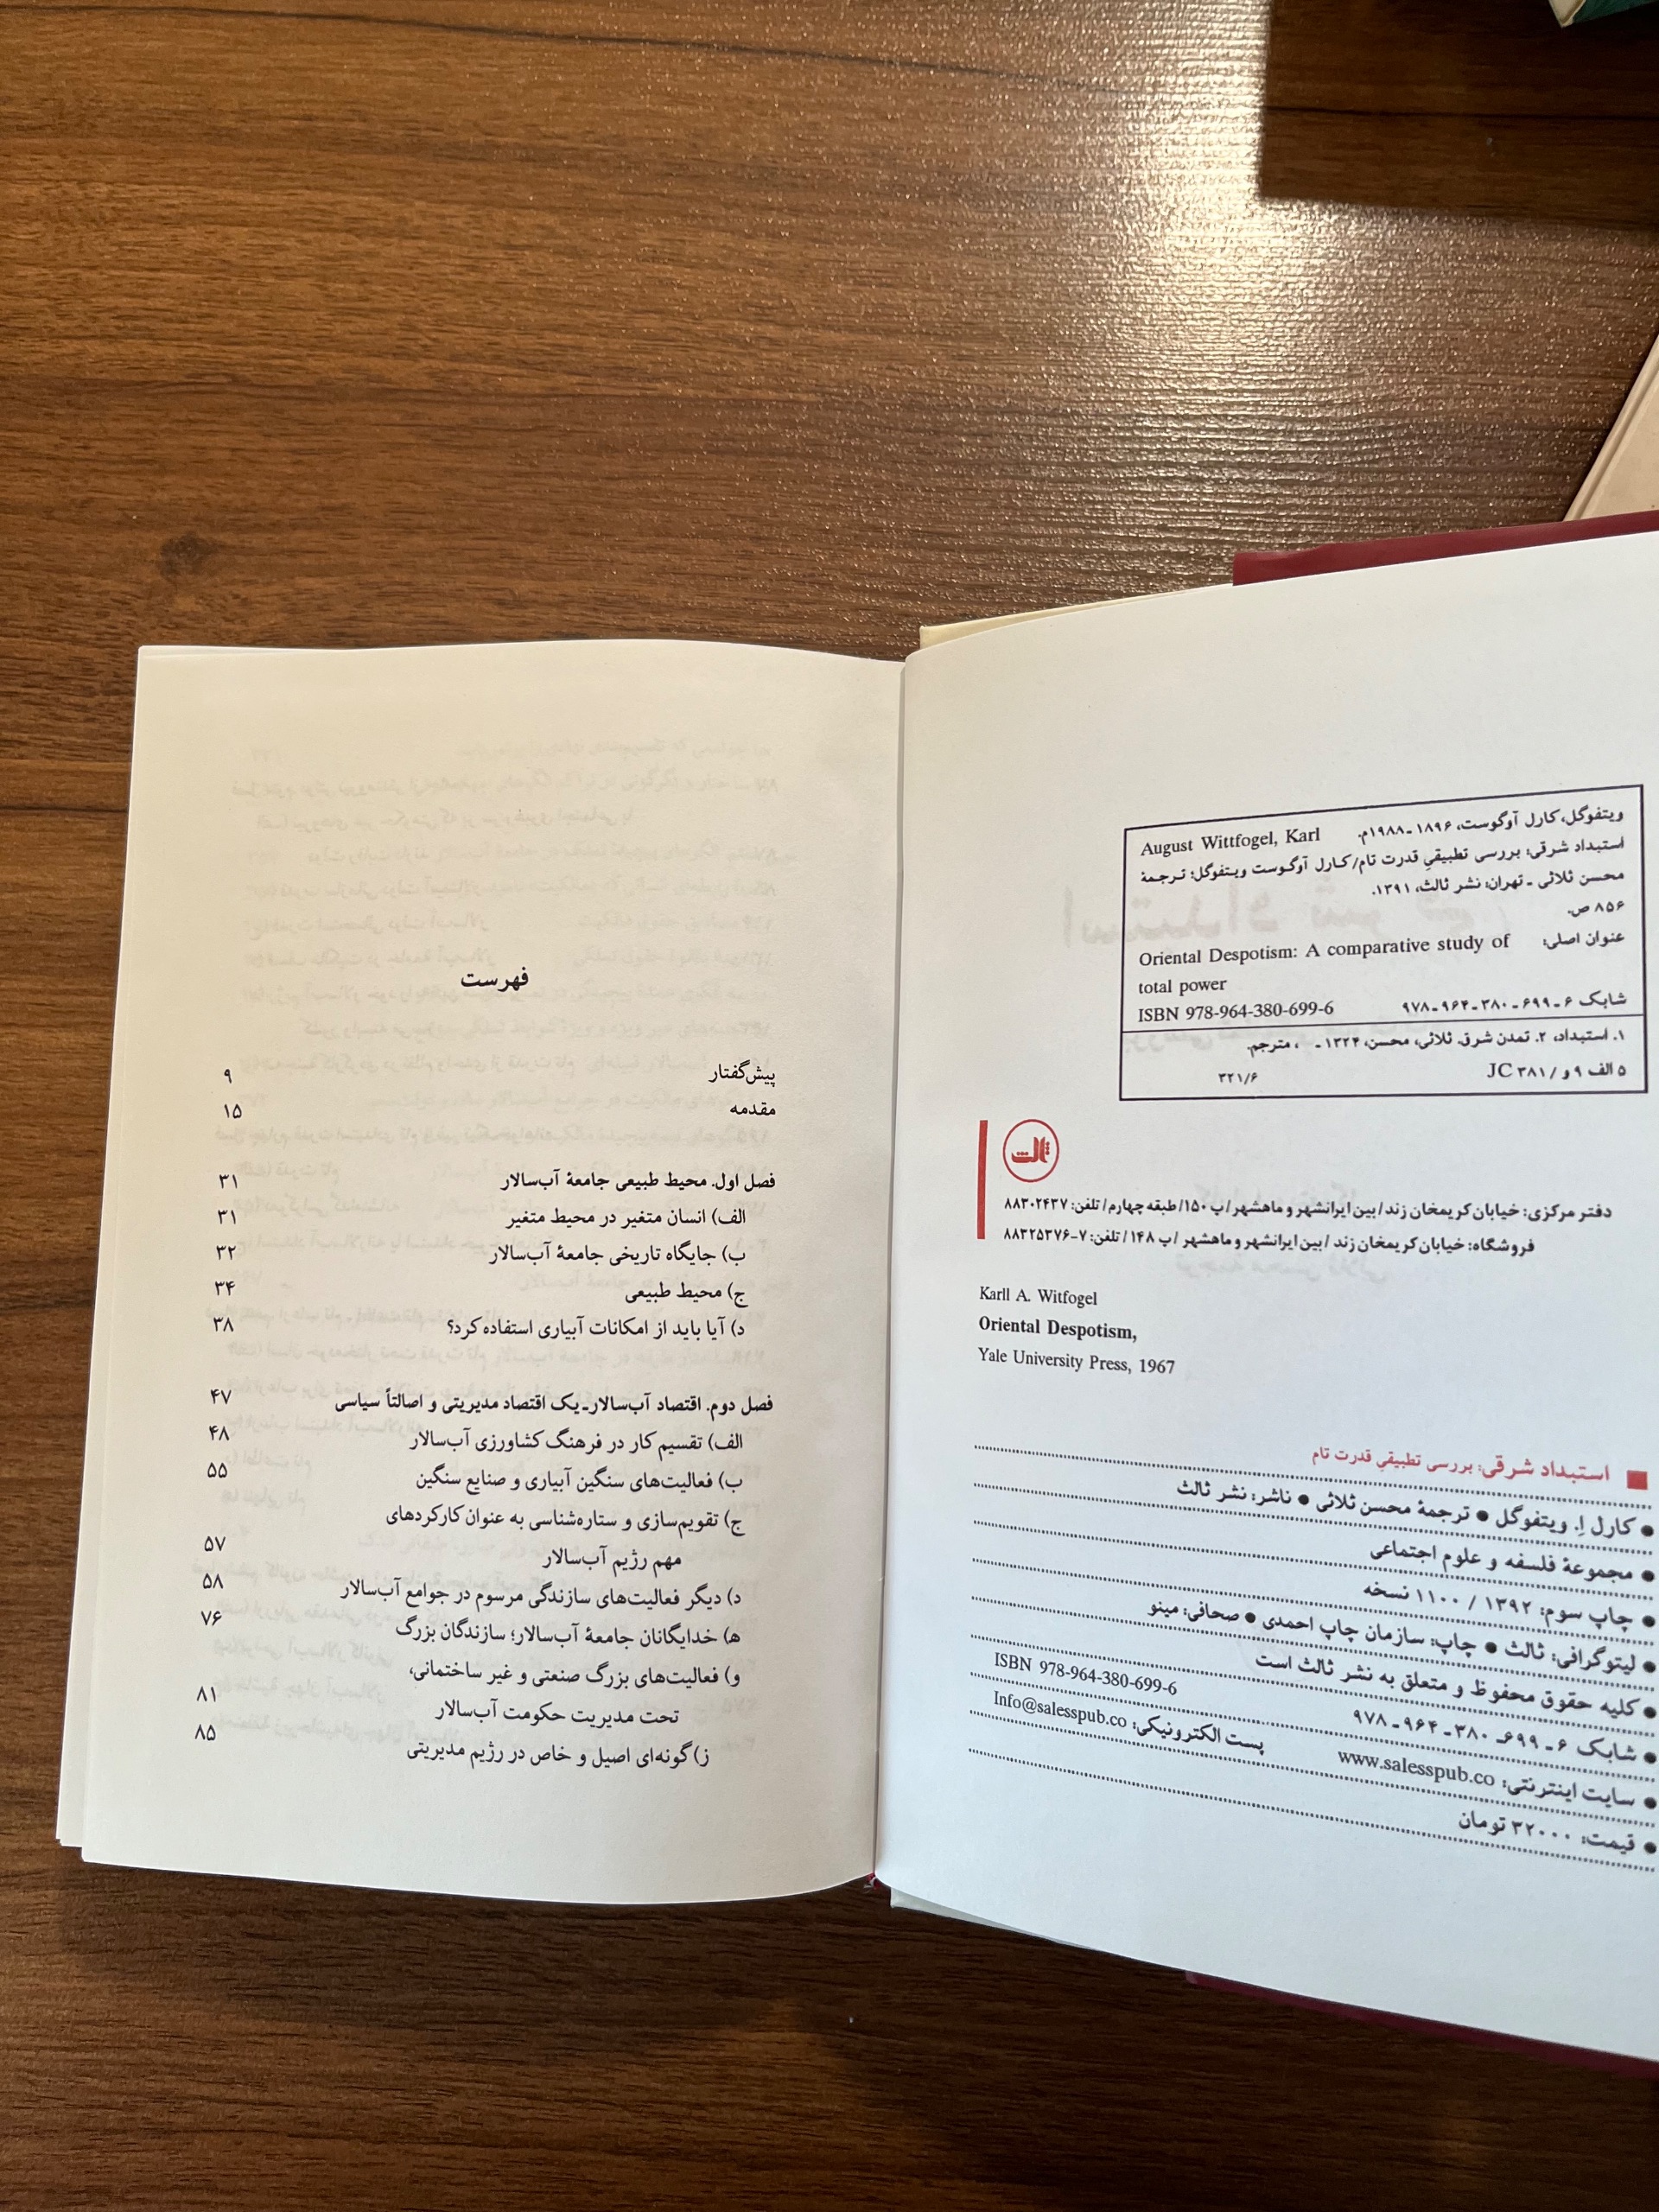 ویتفوگل، کارل آوگوست، ۱۸۹۶ ـ ۱۹۸۸م. August Wittfogel, Karl
استبداد شرقی: بررسی تطبیقیِ قدرت تام/کارل آوگوست ویتفوگل؛ ترجمهٔ
محسن ثلاثی ـ تهران: نشر ثالث، ۱۳۹۱.
۸۵۶ ص.
عنوان اصلی: Oriental Despotism: A comparative study of
total power
شابک ۶ ـ ۶۹۹ ـ ۳۸۰ ـ ۹۶۴ ـ ۹۷۸ ISBN 978-964-380-699-6
۱. استبداد، ۲. تمدن شرق. ثلاثی، محسن، ۱۳۲۴ ـ ، مترجم.
۵ الف ۹ و / ۳۸۱ JC ۳۲۱/۶
ثالث
دفتر مرکزی: خیابان کریمخان زند/ بین ایرانشهر و ماهشهر/ پ ۱۵۰/ طبقه چهارم/ تلفن: ۸۸۳۰۲۴۳۷
فروشگاه: خیابان کریمخان زند / بین ایرانشهر و ماهشهر / پ ۱۴۸ / تلفن: ۷-۸۸۳۲۵۳۷۶
Karll A. Witfogel
Oriental Despotism,
Yale University Press, 1967
استبداد شرقی: بررسی تطبیقیِ قدرت تام
● کارل اِ. ویتفوگل ● ترجمهٔ محسن ثلاثی ● ناشر: نشر ثالث
● مجموعهٔ فلسفه و علوم اجتماعی
● چاپ سوم: ۱۳۹۲ / ۱۱۰۰ نسخه
● لیتوگرافی: ثالث ● چاپ: سازمان چاپ احمدی ● صحافی: مینو
● کلیه حقوق محفوظ و متعلق به نشر ثالث است
● شابک ۶ ـ ۶۹۹ ـ ۳۸۰ ـ ۹۶۴ ـ ۹۷۸ ISBN 978-964-380-699-6
● سایت اینترنتی: www.salesspub.co پست الکترونیکی: Info@salesspub.co
● قیمت: ۳۲۰۰۰ تومان
فهرست
پیش‌گفتار ۹
مقدمه ۱۵
فصل اول. محیط طبیعی جامعهٔ آب‌سالار ۳۱
الف) انسان متغیر در محیط متغیر ۳۱
ب) جایگاه تاریخی جامعهٔ آب‌سالار ۳۲
ج) محیط طبیعی ۳۴
د) آیا باید از امکانات آبیاری استفاده کرد؟ ۳۸
فصل دوم. اقتصاد آب‌سالار ـ یک اقتصاد مدیریتی و اصالتاً سیاسی ۴۷
الف) تقسیم کار در فرهنگ کشاورزی آب‌سالار ۴۸
ب) فعالیت‌های سنگین آبیاری و صنایع سنگین ۵۵
ج) تقویم‌سازی و ستاره‌شناسی به عنوان کارکردهای
مهم رژیم آب‌سالار ۵۷
د) دیگر فعالیت‌های سازندگی مرسوم در جوامع آب‌سالار ۵۸
ه) خدایگانان جامعهٔ آب‌سالار؛ سازندگان بزرگ ۷۶
و) فعالیت‌های بزرگ صنعتی و غیر ساختمانی،
تحت مدیریت حکومت آب‌سالار ۸۱
ز) گونه‌ای اصیل و خاص در رژیم مدیریتی ۸۵